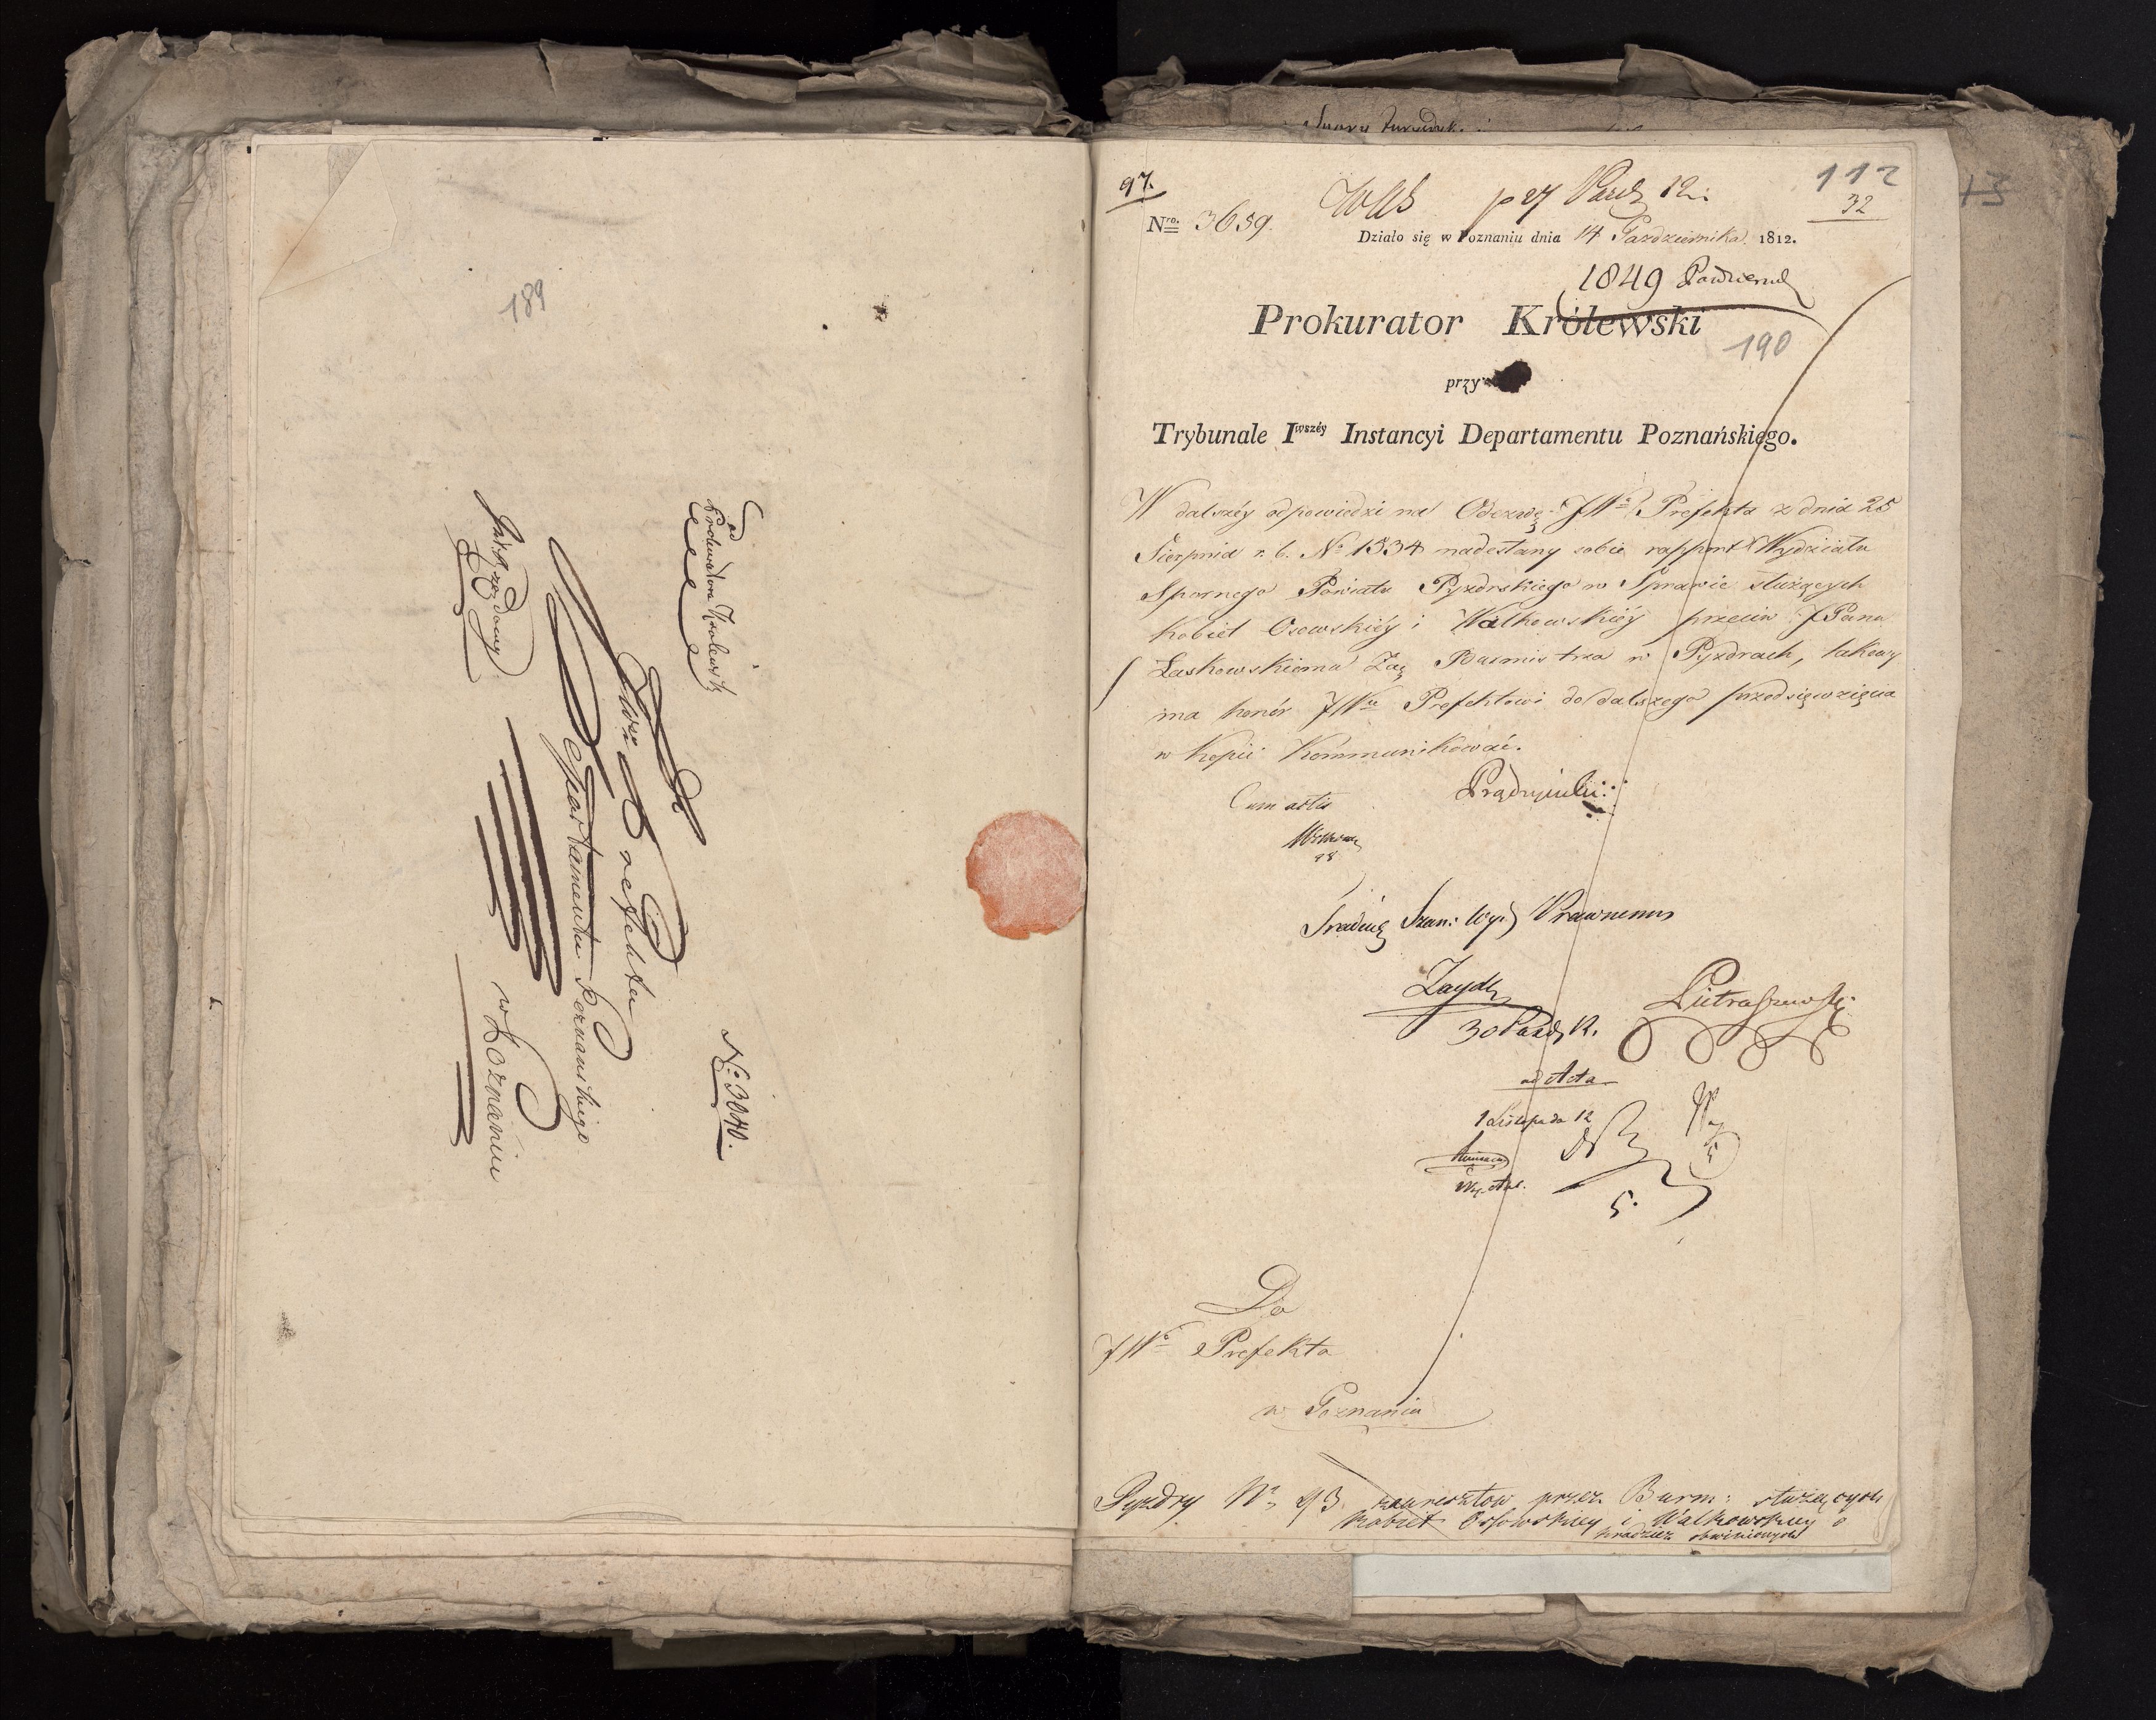 189
Od
Prokuratora Królewsk
N: 3040.
Do
JWo Prefekta
Departamentu Poznańskiego
w Poznaniu
97.
112
32
Nro. 3659.
Działo się w Poznaniu dnia 14 Pazdziernika 1812.
1849
Prokurator Królewski
190
przy
Trybunale Iwszéy Instancyi Departamentu Poznańskiego.
W dalszéy odpowiedzi na Odezwę JWo Prefekta z dnia 25
Sierpnia r. b. No 1534 nadesłany sobie rapport Wydziału
Spornego Powiatu Pyzdrskiego w Sprawie służących
Kobiet Osowskiéy i Walkowskiéy przeciw JPanu
Laskowskiemu Zaę Burmistrza w Pyzdrach, takowy
ma honór JWu Prefektowi do dalszego przedsięwzięcia
w kopii kommunikować.
Cum actis
Prawnemu
30 Pazdz 12.
Pietraszewski
ad Acta
1 Listopada 12
5.
Do
JWo Prefekta
w Poznaniu
Pyzdry No 93 zaaresztow przez Burm: służących
Kobiet Ossowskiey i Walkowskiey o
kradzież obwinionych